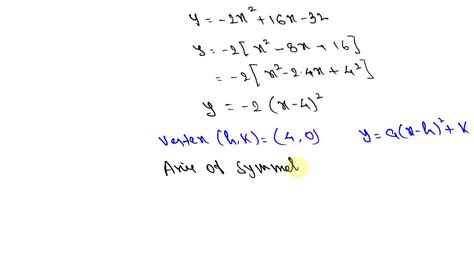 y = -2x² + 16x - 32
y = -2[x² - 8x + 16]
= -2[x² - 2·4x + 4²]
y = -2 (x-4)²
Vertex (h,k) = (4,0) y = a(x-h)² + k
Axis of symmet